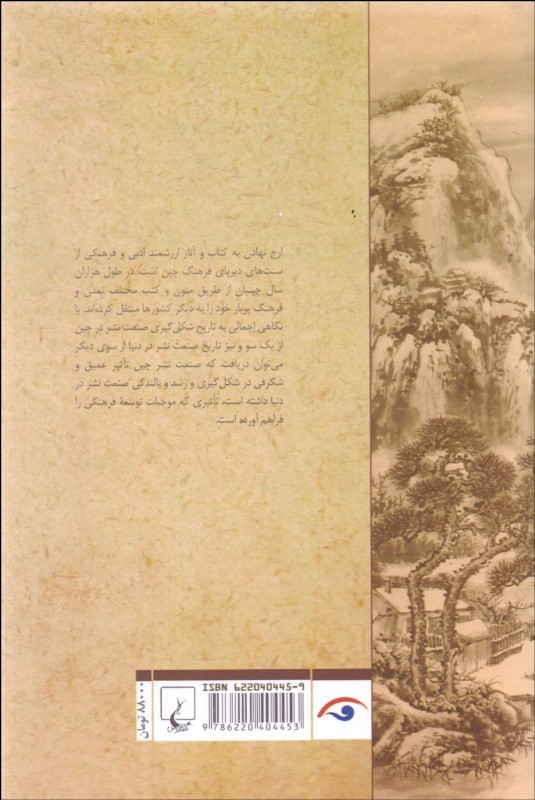 ارج نهادن به کتاب و آثار ارزشمند ادبی و فرهنگی از
سنت‌های دیرپای فرهنگ چین است. در طول هزاران
سال چینیان از طریق متون و کتب مختلف تمدن و
فرهنگ پربار خود را به دیگر کشورها منتقل کرده‌اند. با
نگاهی اجمالی به تاریخ شکل‌گیری صنعت نشر در چین
از یک سو و نیز تاریخ صنعت نشر در دنیا از سوی دیگر
می‌توان دریافت که صنعت نشر چین تأثیر عمیق و
شگرفی در شکل‌گیری و رشد و بالندگی صنعت نشر در
دنیا داشته است، تأثیری که موجبات توسعهٔ فرهنگی را
فراهم آورده است.
۸۸۰۰۰ تومان
ISBN 622040445-9
9 786220 404453